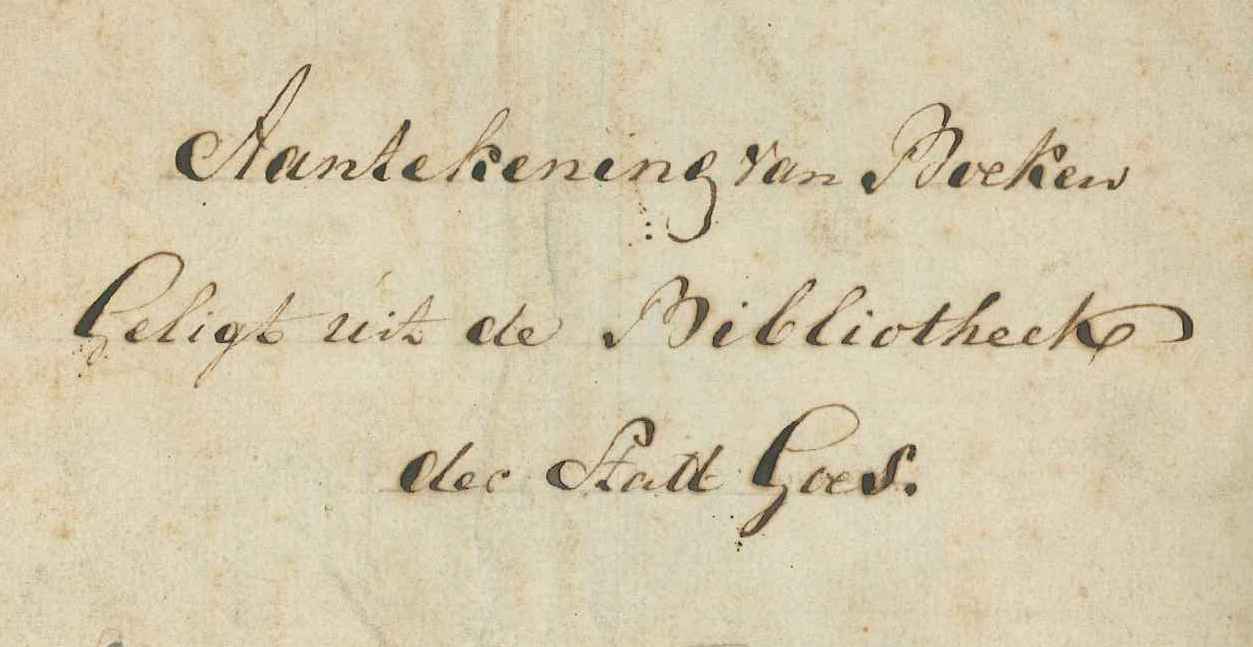 Aantekening van Boeken
Geligt uit de Bibliotheek
der Stadt Goes.